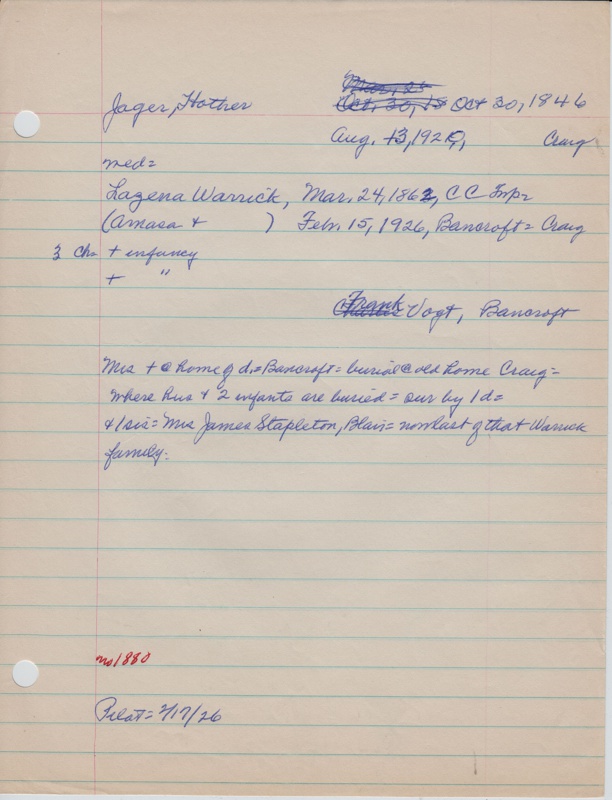 Jager, Hother
Oct 30, 1846
Aug. 13, 1920, Craig
med=
Lazena Warrick, Mar. 24, 1862, CC Twp=
(Amasa + ) Feb. 15, 1926, Bancroft = Craig
3 ch= + infancy
+ "
Frank Vogt, Bancroft
Mrs + @ home of d.= Bancroft = burial @ old home Craig =
where hus + 2 infants are buried = sur by 1 d=
+ 1 sis = Mrs James Stapleton, Blair = now last of that Warrick
family.
no 1880
Pilot = 2/17/26